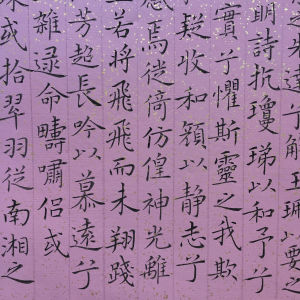 之先達兮解玉珮以要之
明詩抗瓊珶以和予兮
實兮懼斯靈之我欺
疑收和顏以静志兮
感焉徙倚仿偟神光離
若將飛飛而未翔踐
芳超長吟以慕遠兮
雜遝命疇嘯侶或
或拾翠羽從南湘之